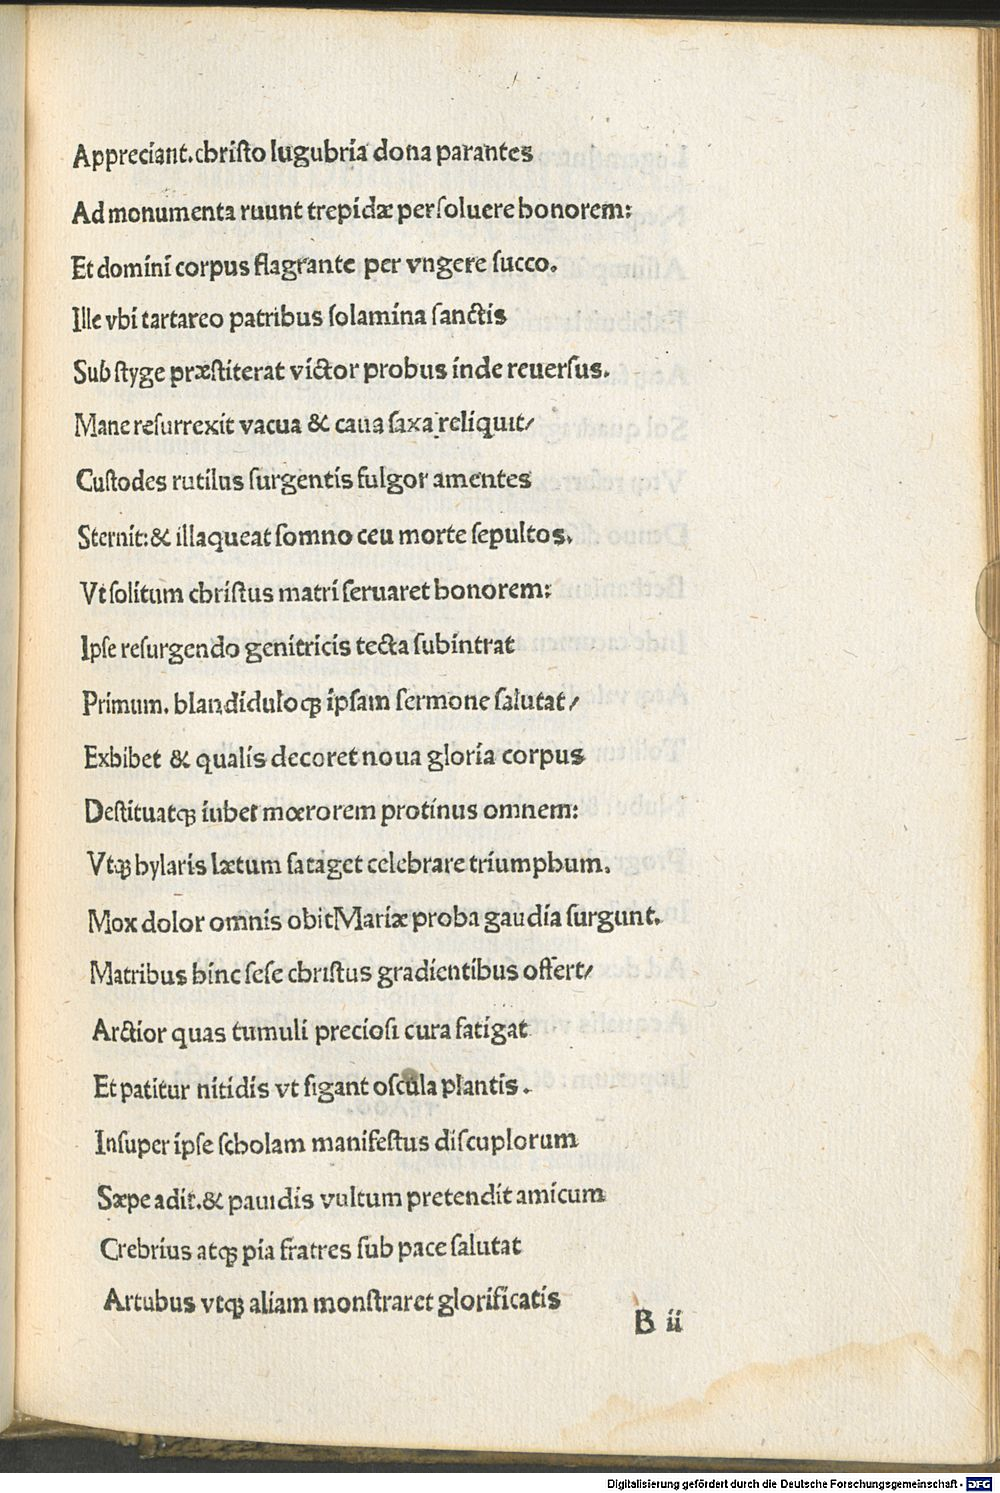 Appreciant. christo lugubria dona parantes
Ad monumenta ruunt trepidæ persoluere honorem:
Et domini corpus flagrante per vngere succo.
Ille vbi tartareo patribus solamina sanctis
Sub styge præstiterat victor probus inde reuersus.
Mane resurrexit vacua & caua saxa reliquit/
Custodes rutilus surgentis fulgor amentes
Sternit: & illaqueat somno ceu morte sepultos.
Vt solitum christus matri seruaret honorem:
Ipse resurgendo genitricis tecta subintrat
Primum. blandiduloqꝫ ipsam sermone salutat/
Exhibet & qualis decoret noua gloria corpus
Destituatqꝫ iubet mœrorem protinus omnem:
Vtqꝫ hylaris lætum sataget celebrare triumphum.
Mox dolor omnis obit Mariæ proba gaudia surgunt.
Matribus hinc sese christus gradientibus offert/
Arctior quas tumuli preciosi cura fatigat
Et patitur nitidis vt figant oscula plantis.
Insuper ipse scholam manifestus discuplorum
Sæpe adit. & pauidis vultum pretendit amicum
Crebrius atqꝫ pia fratres sub pace salutat
Artubus vtqꝫ aliam monstraret glorificatis
B ii
Digitalisierung gefördert durch die Deutsche Forschungsgemeinschaft - DFG